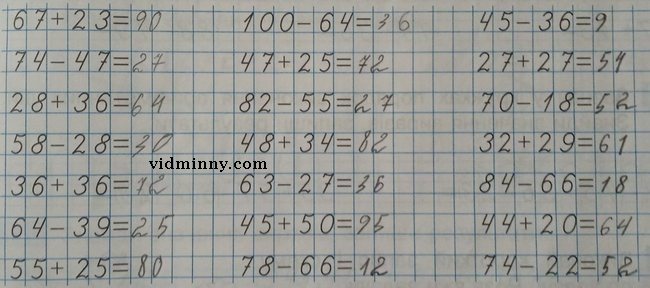 67+23=90 100-64=36 45-36=9
74-47=27 47+25=72 27+27=54
28+36=64 82-55=27 70-18=52
58-28=30 48+34=82 32+29=61
vidminny.com
36+36=72 63-27=36 84-66=18
64-39=25 45+50=95 44+20=64
55+25=80 78-66=12 74-22=52